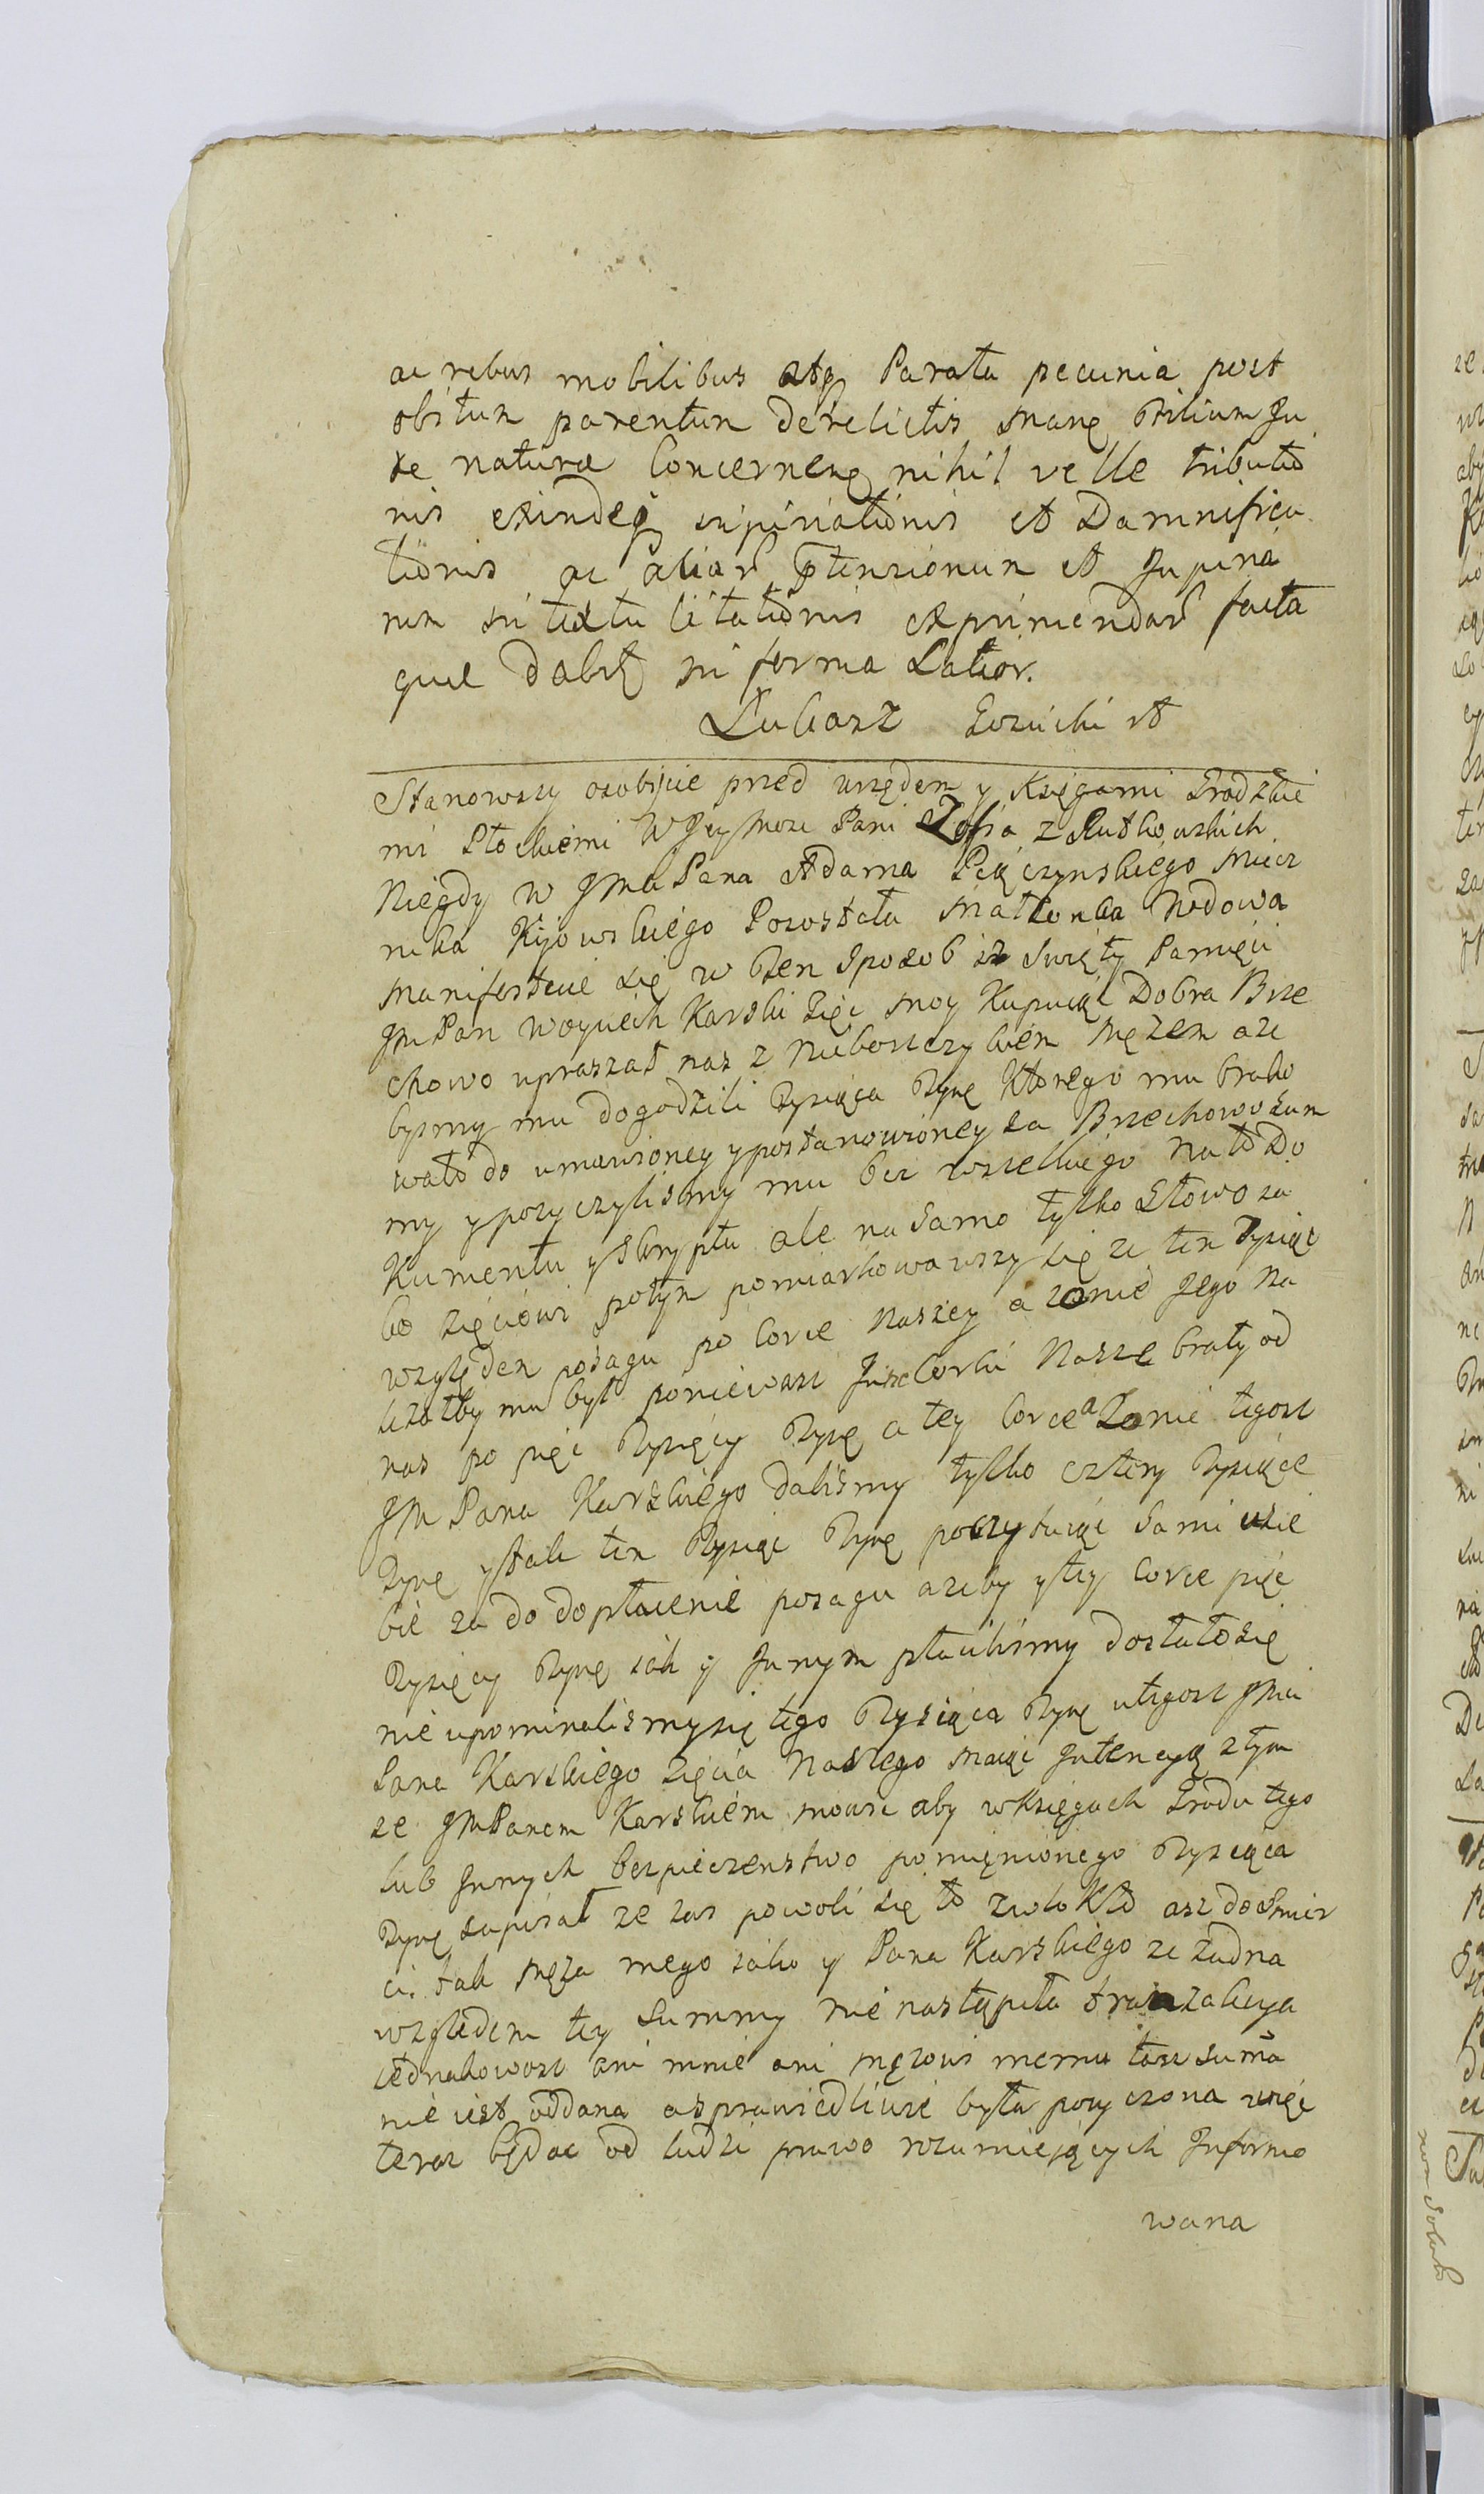 ac rebus mobilibus atq Parata pecunia post
obitum parentum derelictis
re naturæ Concernens nihil velle tributio
nis exindeq et Damnifica
tionis ac aliar ptensionum et Jnpina
rum in textu Citationis exprimendar facta
que dabit in forma Latior.
Lukasz et
Stanowszy osobiscie przed urzędem y Księgami Grodzkie
mi Płockiemi W Jey Mosc Pani Zofia z Rutkowskich
Niegdy w JMci Pana Adama Pęczynskiego Miecz
nika Kijowskiego Pozostała Małzonka Wdowa
Manifestuie się w ten Sposob iz Swięty Pamięci
JM Pan Woyciech Karski Zięc moy Kupuiąc Dobra Brze
chowo upraszał nas z Nieboszczykiem Męzem aze
bysmy mu dogodzili Tysiąca Tynf Ktorego mu brako
wało do umowioney y postanowioney za Brzechowo Sum
my y pozyczylismy mu bez wszelkiego Na to Do
Kumentu y Skryptu ale na Samo tylko Słowo ia
ko Zięciowi potym pomiarkowawszy się ze ten Tysiąc
względem posagu po Corce Naszey a zonie Jego Na
lezałby mu był poniewasz Jnsze Corki Nasze brały od
nas po pięc Tysięcy Tynf a tey Corce a Zonie tegosz
JM Pana Karskiego dalismy tylko cztery Tysiące
Tynf y tak ten Tysiąc Tynf poczytuiąc Sami u sie
bie za do dopłacenie posagu azeby y tey Corce pięc
Tysięcy Tynf iak y Jnnym płacilismy dostało się
nie upominalismy się tego Tysiąca Tynf u tegosz JMci
Pana Karskiego Zięcia Naszego maiąc Jntencyą z tym
ze JM Panem Karskiem mowic aby w Księgach Grodu tego
lub Jnnych bezpieczenstwo pomięnionego Tysiąca
Tynf zapisał ze zas powoli się to zwlokło asz do Smier
ci tak Męza mego iako y Pana Karskiego ze zadna
względem tey Summy nie nastąpiła tranzakcya
iednakowosz ani mnie ani męzowi memu tasz Suma
nie iest oddana a sprawiedliwie była pozyczona więc
teraz będąc od ludzi prawo rozumieiących Jnformo
wana